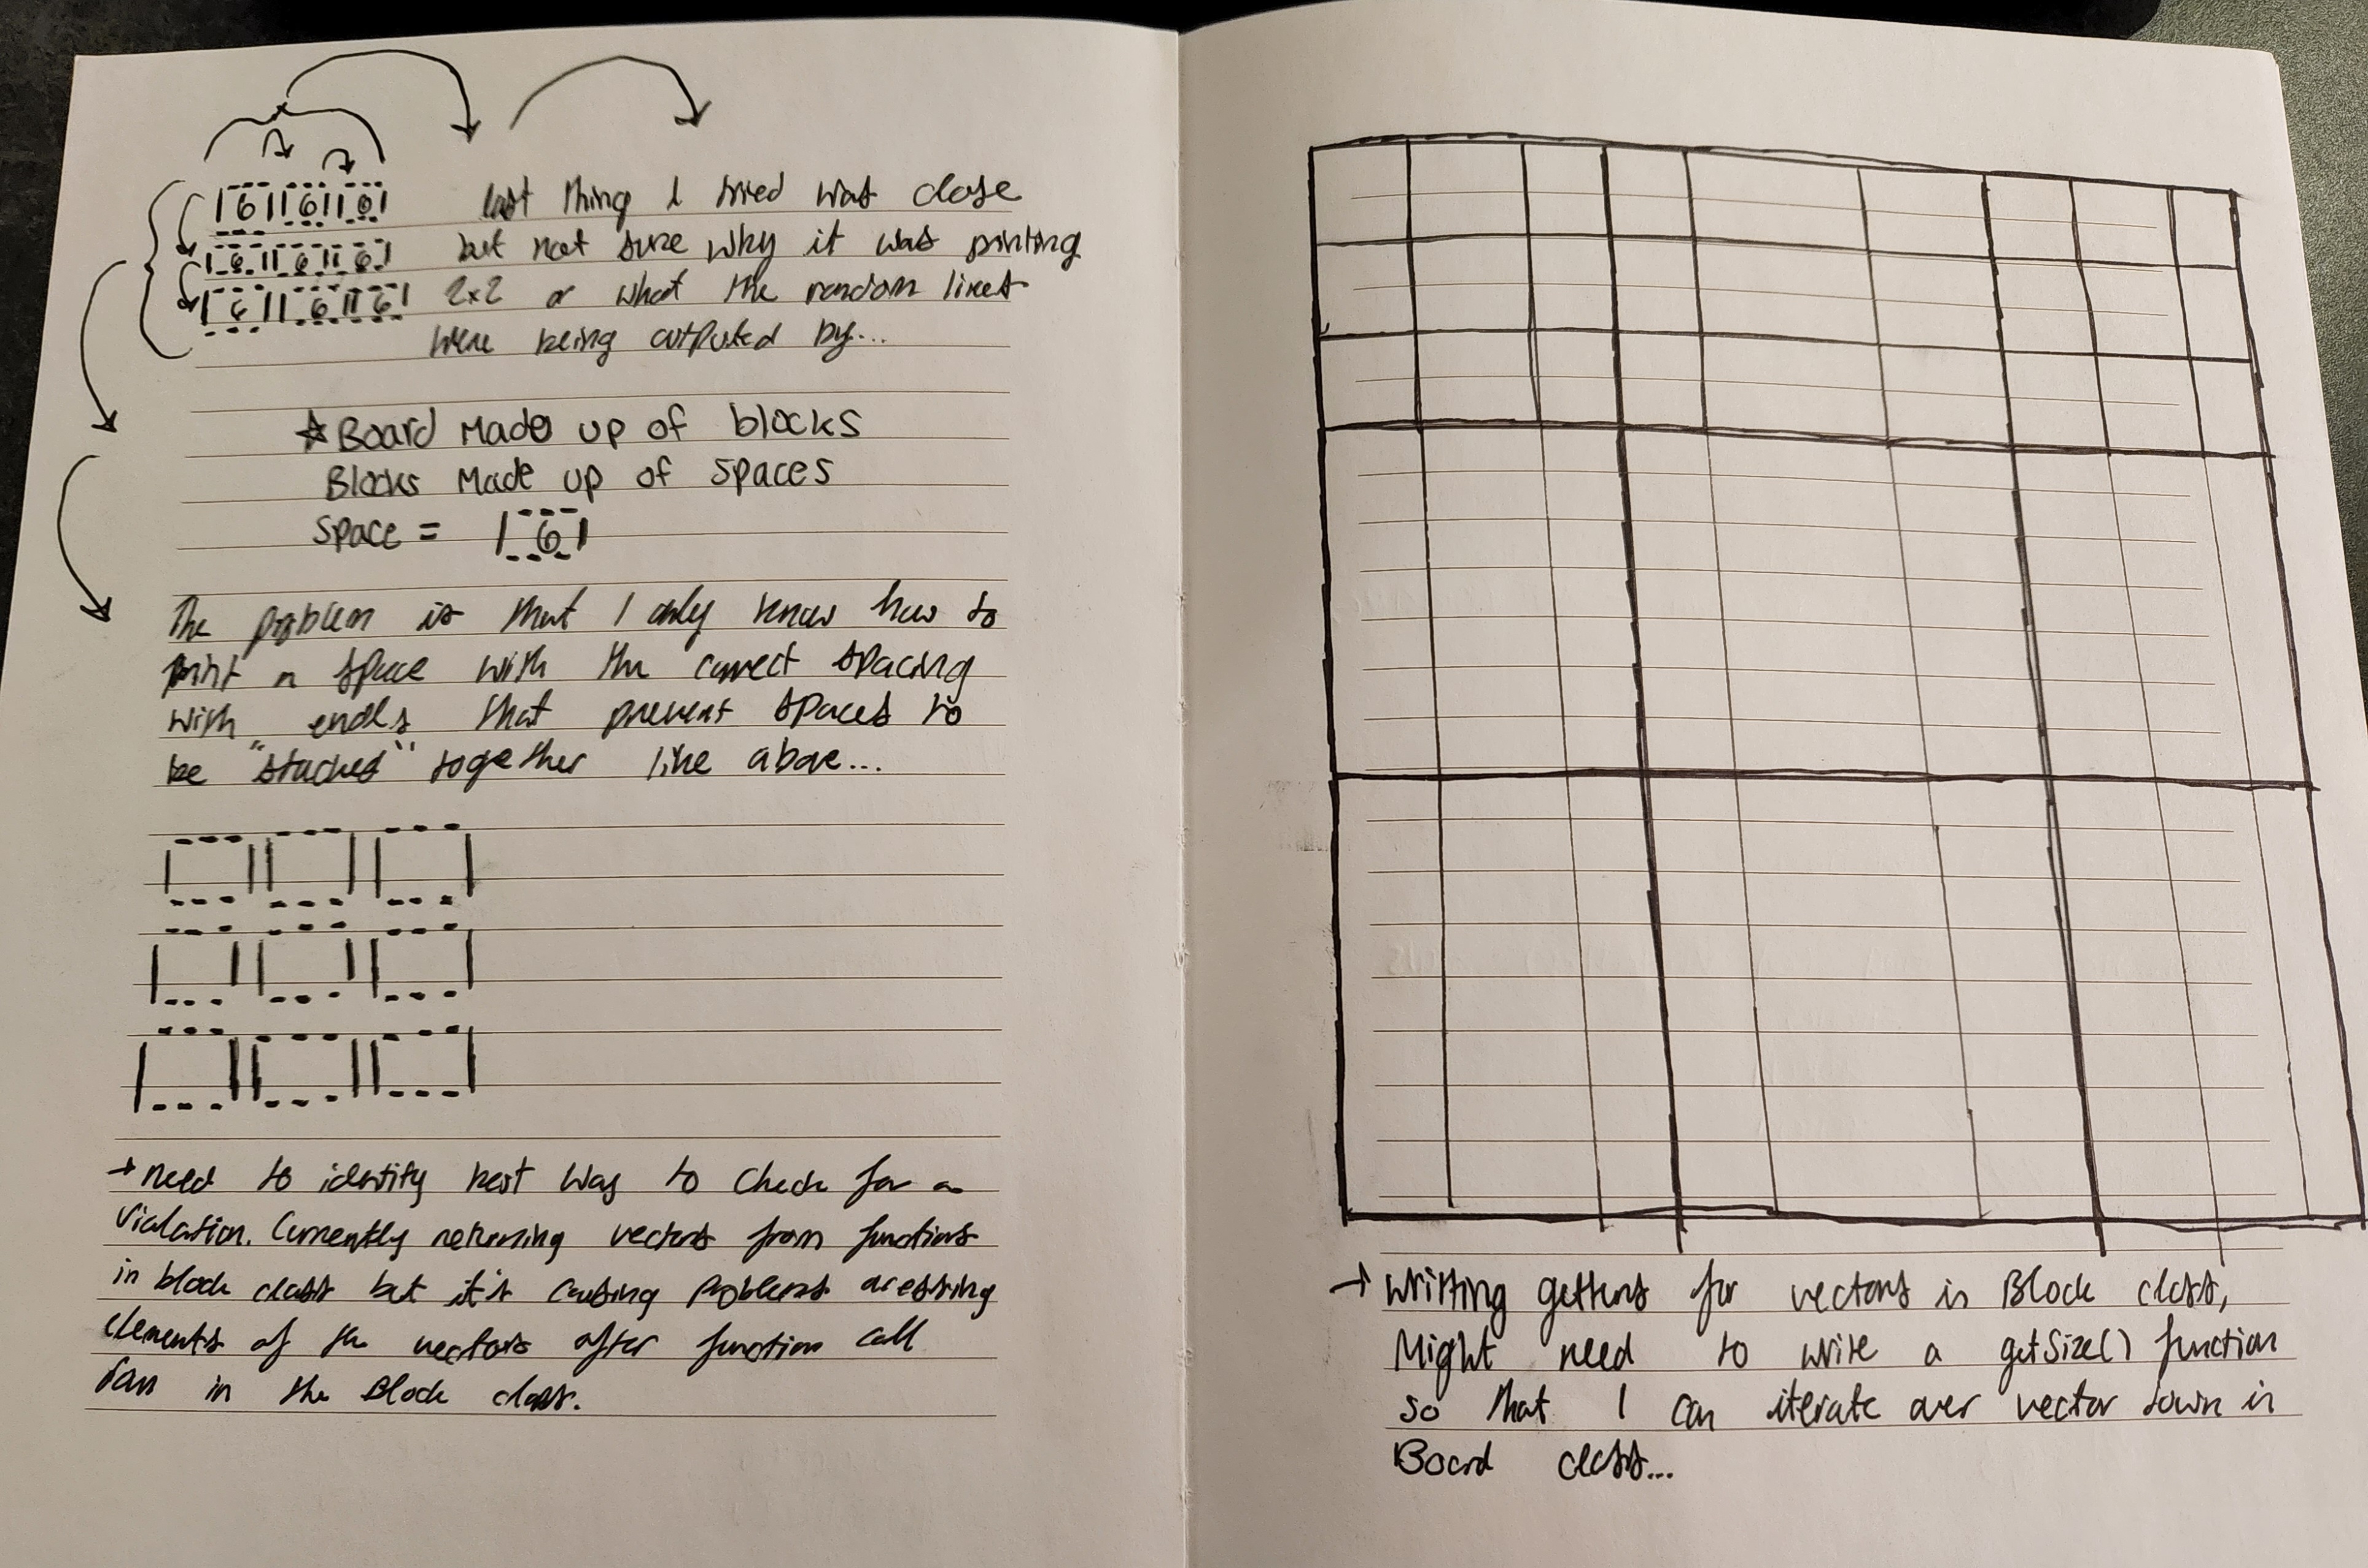 |6||6||6|
|6||6||6|
|6||6||6|
last thing I tried was close
but not sure why it was printing
2x2 or what the random lines
were being outputed by...
☆Board Made up of blocks
Blocks Made up of spaces
Space = |6|
The problem is that I only know how to
print a space with the correct spacing
with endls that prevent spaces to
be "stacked" together like above...
→ need to identify best way to check for a
violation. Currently returning vectors from functions
in block class but it's causing problems acessing
elements of the vectors after function call
ran in the Block class.
→ Writting getters for vectors in Block class,
Might need to write a getSize() function
so that I can iterate over vector down in
Board class...